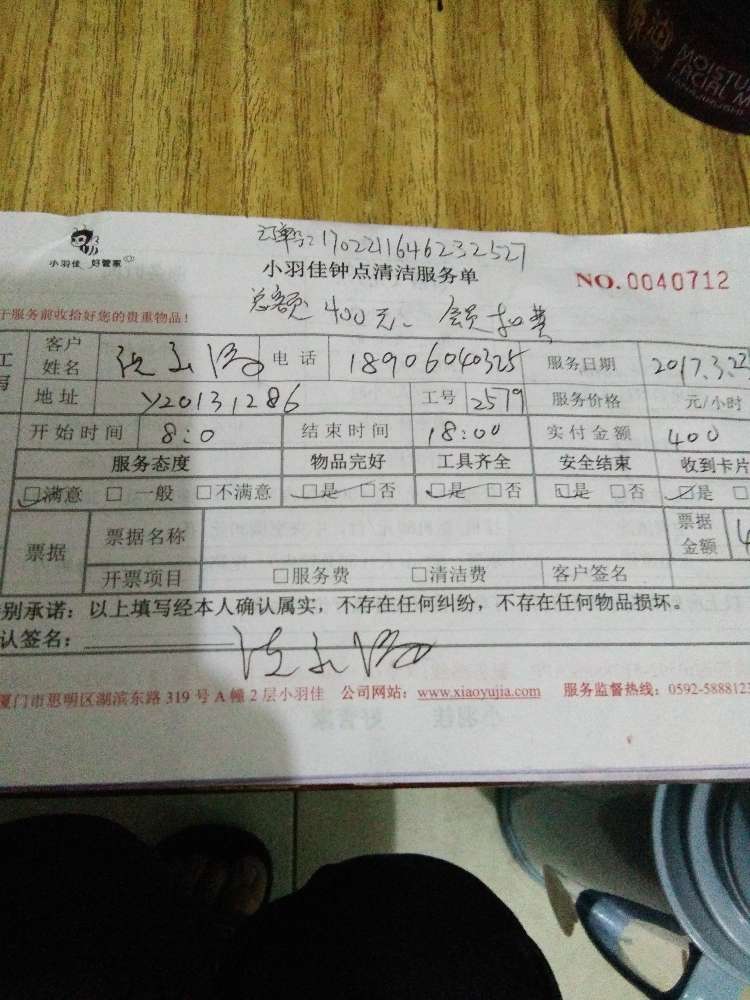 MOISTU
FACIAL M
订单号:1702211646232527
小羽佳 好管家
小羽佳钟点清洁服务单
NO.0040712
于服务前收拾好您的贵重物品!
总额 400元、会员扣费
工 客户姓名 电话 18906040325 服务日期 2017.3.22
写 地址 Y20131286 工号 2579 服务价格 元/小时
开始时间 8:0 结束时间 18:00 实付金额 400
服务态度 物品完好 工具齐全 安全结束 收到卡片
☑满意 □一般 □不满意 ☑是 □否 ☑是 □否 ☑是 □否 ☑是 □
票据 票据名称 票据金额 4
开票项目 □服务费 □清洁费 客户签名
别承诺:以上填写经本人确认属实,不存在任何纠纷,不存在任何物品损坏。
认签名:
厦门市思明区湖滨东路 319 号 A 幢 2 层小羽佳 公司网站:www.xiaoyujia.com 服务监督热线:0592-5888123